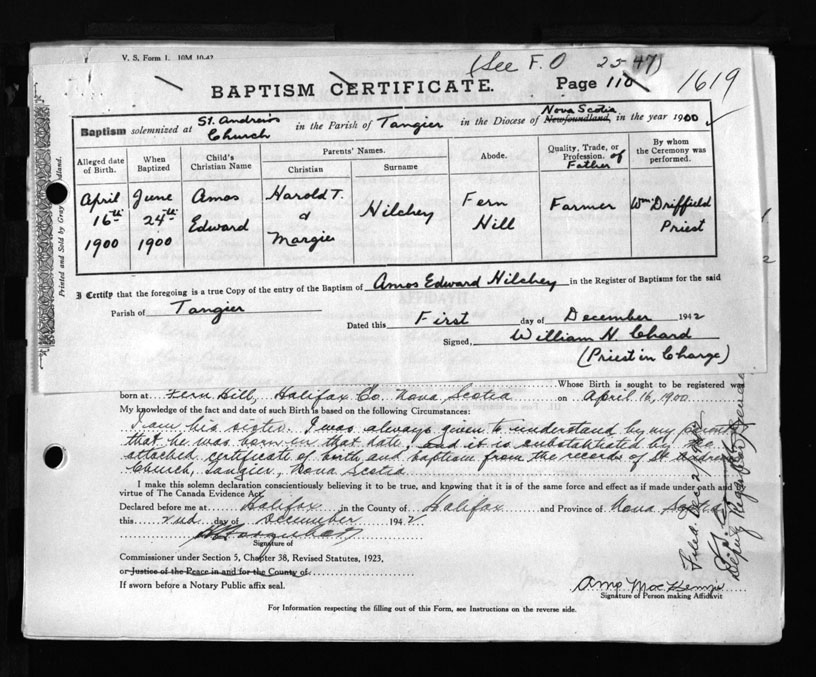 V. S. Form 1. 10M 10-42
(See F. O 25-47)
BAPTISM CERTIFICATE. Page 110 1619
Baptism solemnized at St. Andrew's Church in the Parish of Tangier in the Diocese of Newfoundland, Nova Scotia in the year 1900
Alleged date of Birth. When Baptized Child's Christian Name Parents' Names. Christian Surname Abode. Quality, Trade, or Profession. of Father By whom the Ceremony was performed.
April 16th 1900 June 24th 1900 Amos Edward Harold T. & Margie Hilchey Fern Hill Farmer Wm Driffield Priest
Printed and Sold by Gray
I Certify that the foregoing is a true Copy of the entry of the Baptism of Amos Edward Hilchey in the Register of Baptisms for the said
Parish of Tangier
Dated this First day of December 1942
Signed, William H. Chard
(Priest in Charge)
Whose Birth is sought to be registered was
born at Fern Hill, Halifax Co. Nova Scotia on April 16, 1900
My knowledge of the fact and date of such Birth is based on the following Circumstances:
I am his sister. I was always given to understand by my parents
that he was born on that date, and it is substantiated by the
attached certificate of birth and baptism from the records of St Andrew's
Church, Tangier, Nova Scotia
I make this solemn declaration conscientiously believing it to be true, and knowing that it is of the same force and effect as if made under oath and by
virtue of The Canada Evidence Act.
Declared before me at Halifax in the County of Halifax and Province of Nova Scotia
this 2nd day of December 1942
Signature of
Commissioner under Section 5, Chapter 38, Revised Statutes, 1923,
or Justice of the Peace in and for the County of
If sworn before a Notary Public affix seal.
Signature of Person making Affidavit
For Information respecting the filling out of this Form, see Instructions on the reverse side.
Filed. Dec 2/1942
Deputy Registrar General